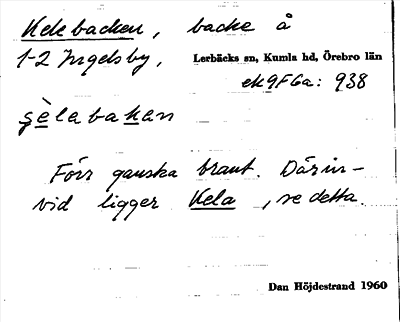 Kelebacken, backe å
1-2 Ingelsby, Lerbäcks sn, Kumla hd, Örebro län
ek 9F6a: 938
şèlabakan
Förr ganska brant. Därin-
vid ligger Kela, se detta.
Dan Höjdestrand 1960